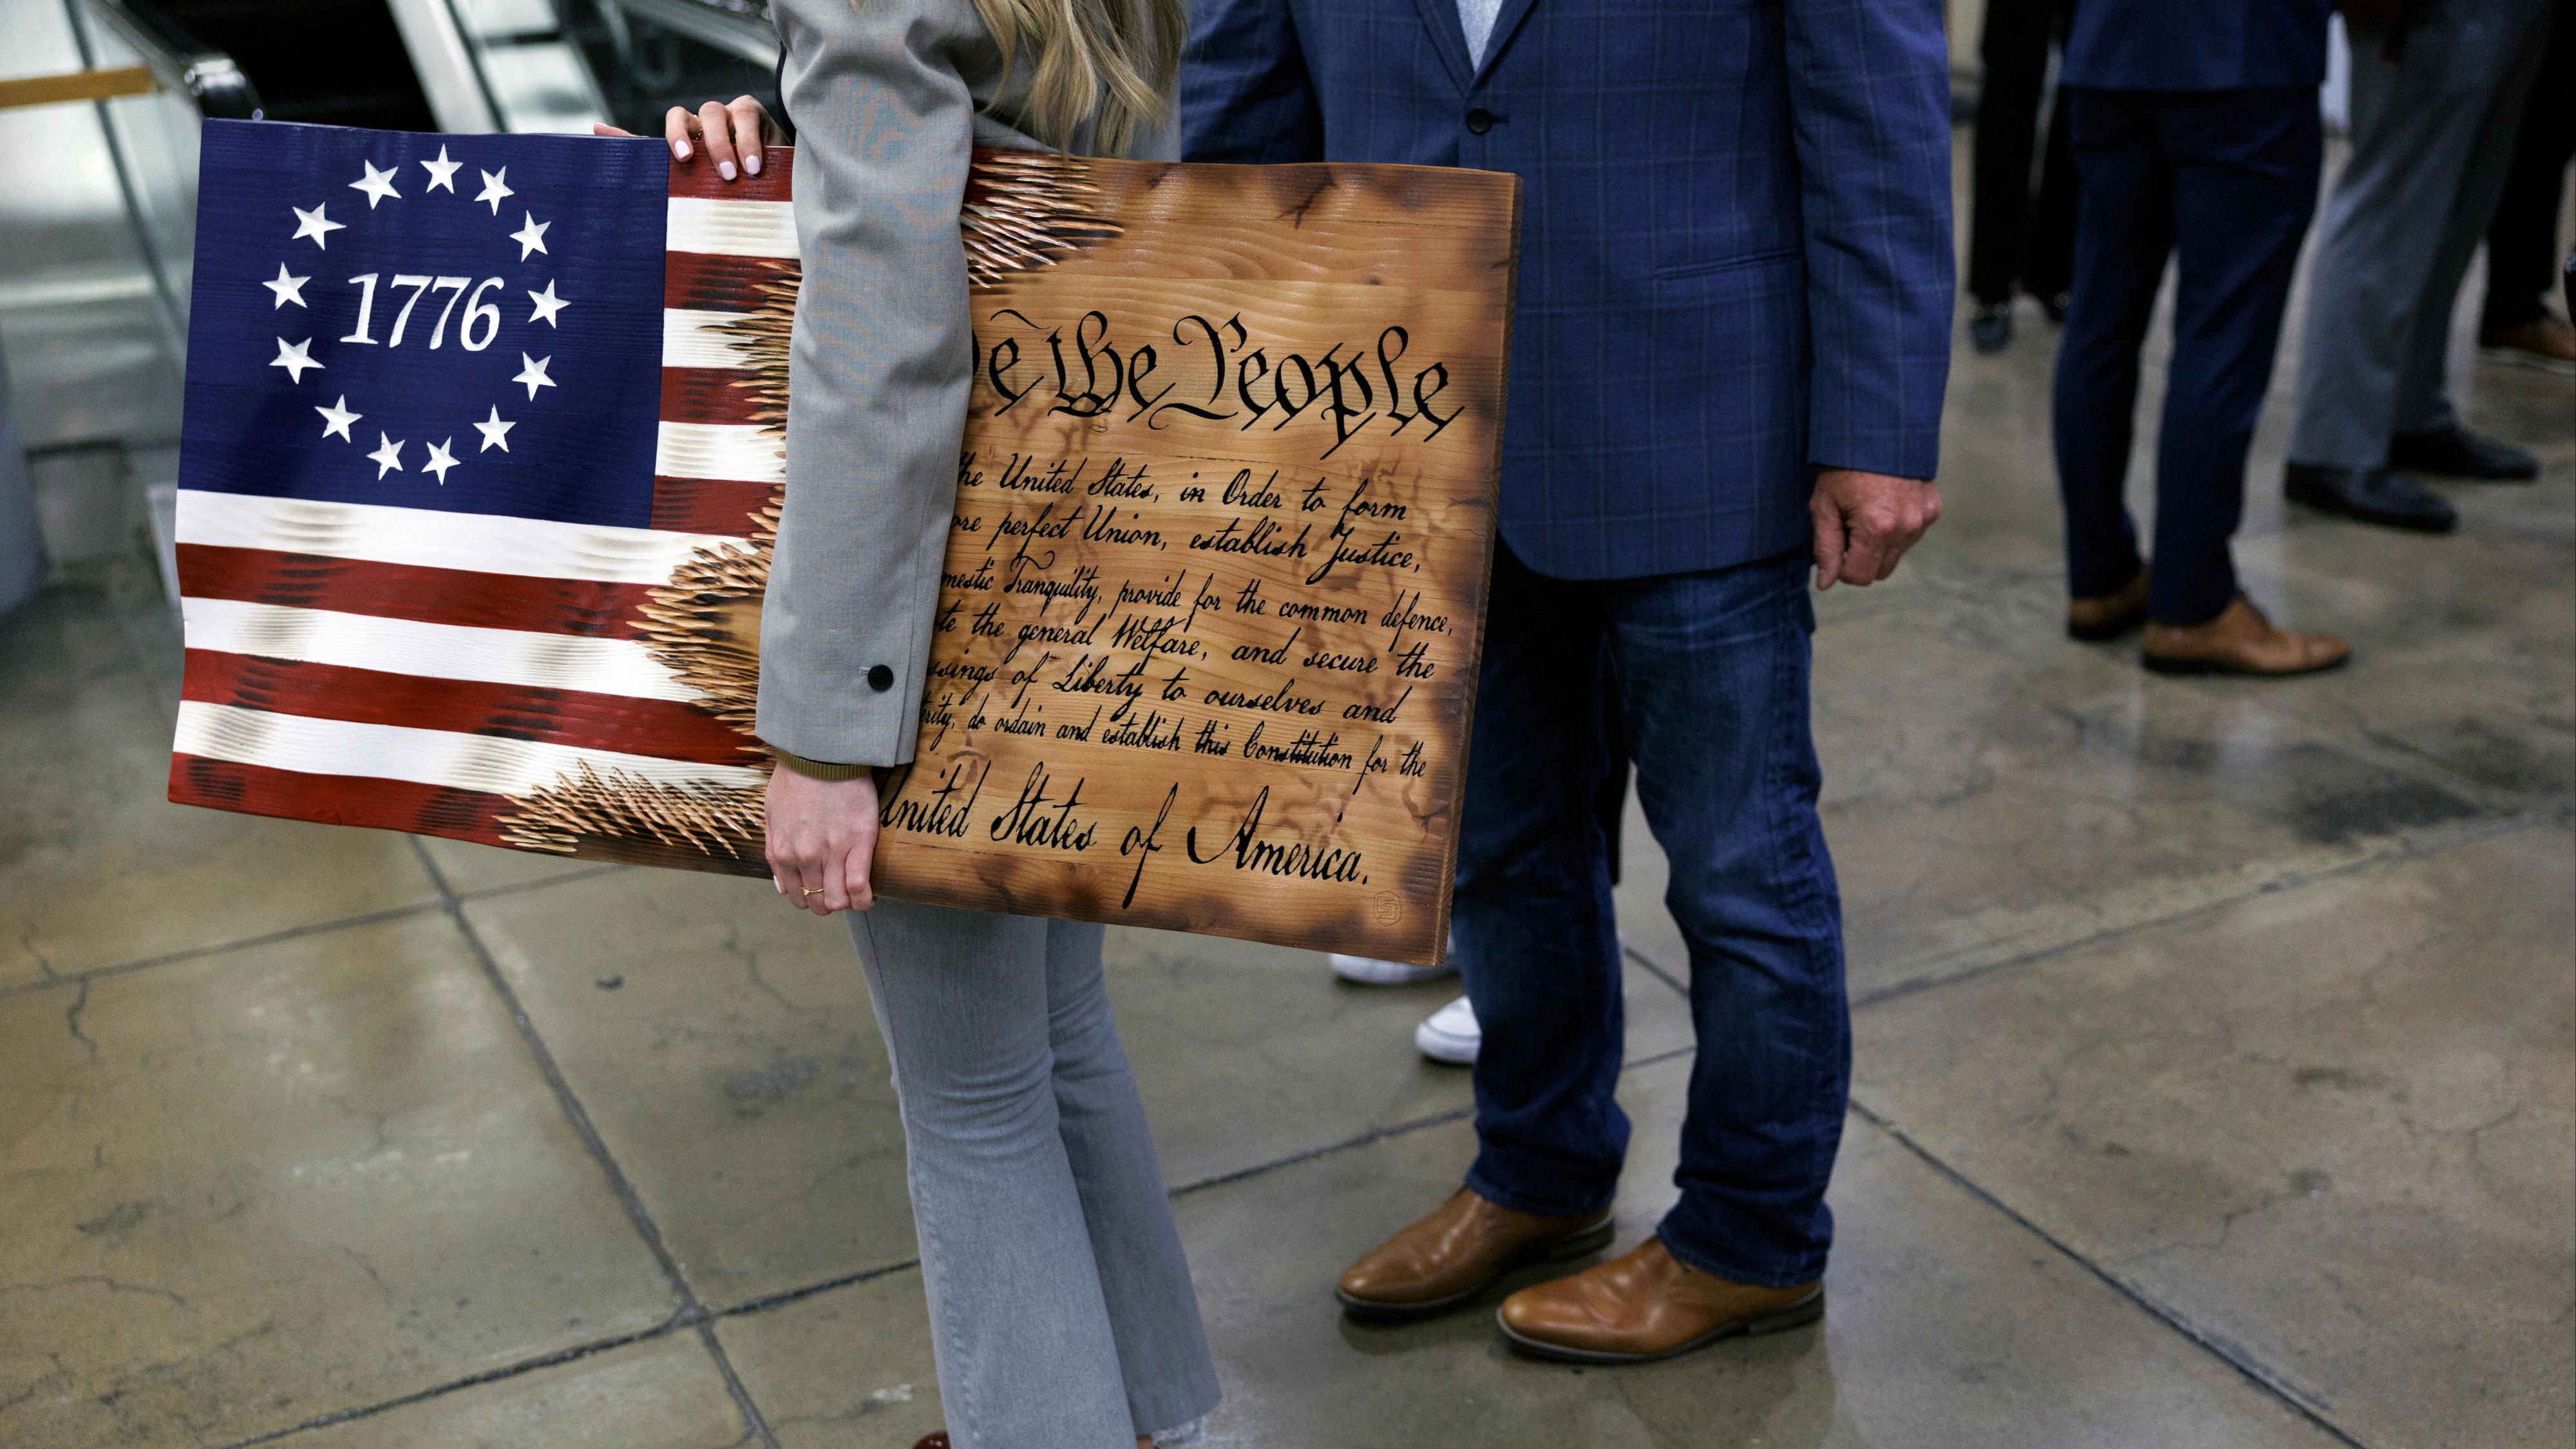 1776
the People
the United States, in Order to form
perfect Union, establish Justice,
Tranquility, provide for the common defence,
the general Welfare, and secure the
of Liberty to ourselves and
do ordain and establish this Constitution for the
United States of America.